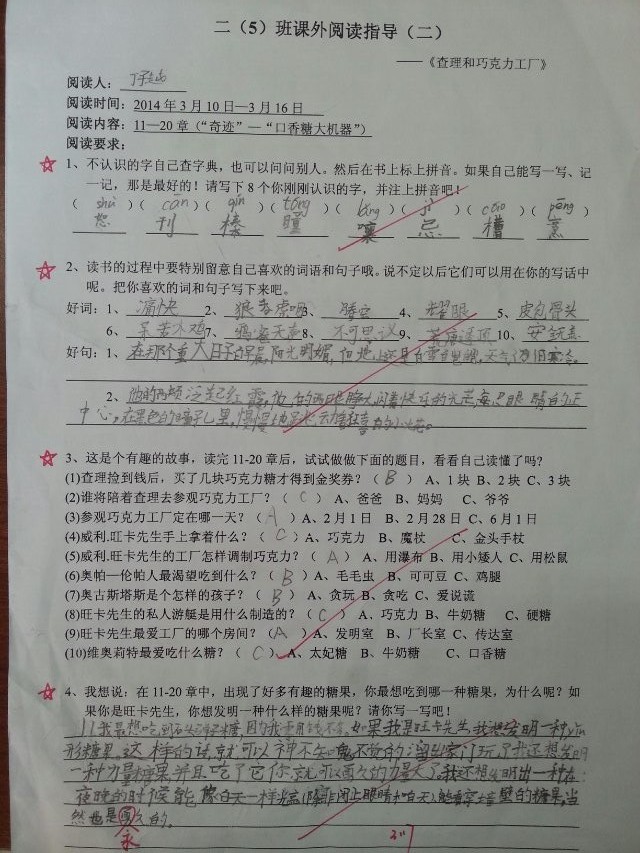 二（5）班课外阅读指导（二）
——《查理和巧克力工厂》
阅读人：
阅读时间：2014年3月10日—3月16日
阅读内容：11—20章（“奇迹”—“口香糖大机器”）
阅读要求：
1、不认识的字自己查字典，也可以问问别人。然后在书上标上拼音。如果自己能写一写、记
一记，那是最好的！请写下8个你刚刚认识的字，并注上拼音吧！
（shù）（cān）（qín）（tóng）（lǎng）（jì）（cáo）（pēng）
恕 刊 榛 瞳 嚷 忌 槽 烹
2、读书的过程中要特别留意自己喜欢的词语和句子哦。说不定以后它们可以用在你的写话中
呢。把你喜欢的词和句子写下来吧。
好词：1、痛快 2、狼吞虎咽 3、腾空 4、耀眼 5、皮包骨头
6、呆若木鸡 7、 8、不可思议 9、荒唐透顶 10、
好句：1、在那个重大日子的早晨，阳光明媚，但地上还是白雪皑皑，天气仍旧寒冷。
2、他的两颊泛起红霞，他的两眼睁大，闪着快乐的光芒，每只眼睛的正
中心，在黑色的瞳孔里，
3、这是个有趣的故事，读完11-20章后，试试做做下面的题目，看看自己读懂了吗？
(1)查理捡到钱后，买了几块巧克力糖才得到金奖券？（B）A、1块 B、2块 C、3块
(2)谁将陪着查理去参观巧克力工厂？（C）A、爸爸 B、妈妈 C、爷爷
(3)参观巧克力工厂定在哪一天？（A）A、2月1日 B、2月28日 C、6月1日
(4)威利.旺卡先生手上拿着什么？（C）A、巧克力 B、魔杖 C、金头手杖
(5)威利.旺卡先生的工厂怎样调制巧克力？（A）A、用瀑布 B、用小矮人 C、用松鼠
(6)奥帕一伦帕人最渴望吃到什么？（B）A、毛毛虫 B、可可豆 C、鸡腿
(7)奥古斯塔斯是个怎样的孩子？（B）A、贪玩 B、贪吃 C、爱说谎
(8)旺卡先生的私人游艇是用什么制造的？（C）A、巧克力 B、牛奶糖 C、硬糖
(9)旺卡先生最爱工厂的哪个房间？（A）A、发明室 B、厂长室 C、传达室
(10)维奥莉特最爱吃什么糖？（C）A、太妃糖 B、牛奶糖 C、口香糖
4、我想说：在11-20章中，出现了好多有趣的糖果，你最想吃到哪一种糖果，为什么呢？如
果你是旺卡先生，你想发明一种什么样的糖果呢？请你写一写吧！
我最想吃到 因为我 如果我是旺卡先生，我想发明一种yǐn
形糖果，这样的话就可以神不知鬼不觉的溜出家门玩了，我还想发明
一种力量糖果，并且吃了它你就可以 力量大了，我还想发明出一种在
夜晚的时候能像白天一样 能看穿墙壁的糖果，当
然也是永久的。
永
3.17